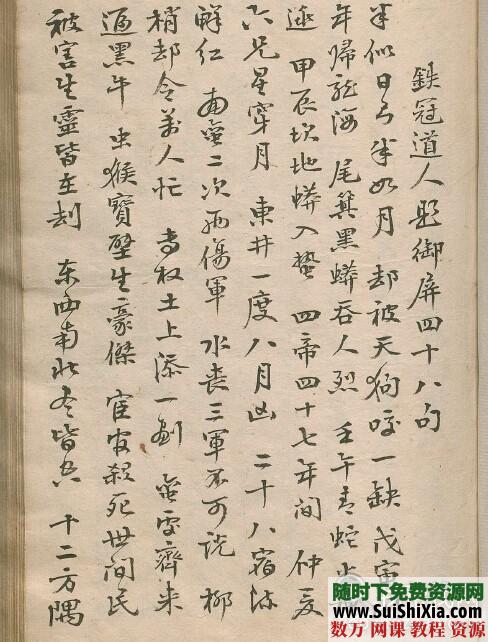 鉄冠道人題御屏四十八句
半似日了半如月 却被天狗咬一缺 戊寅
年歸龍海 尾箕黑蟒吞人烈 壬午青蛇
甲辰坎地蟒入蟄 四帝四十七年間 仲夏
六兄星穿月 東井一度八月凶 二十八宿
鮮紅 南蠻二次两傷軍 水喪三軍不可說 柳
稍却令萬人忙 土上添一劃 齊来
逼黑牛 虫猴寶壁生豪傑 宦官殺死世间民
被害生靈皆在刧 东西南北 十二方隅
随时下免费资源网
www.SuiShiXia.com
数万 网课 教程 资源